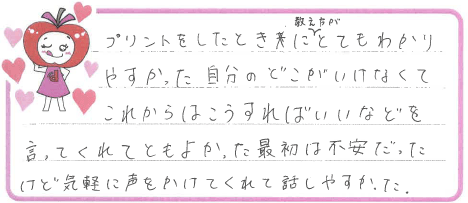 プリントをしたとき楽に教え方がとてもわかり
やすかった自分のどこがいけなくて
これからはこうすればいいなどを
言ってくれてともよかった最初は不安だった
けど気軽に声をかけてくれて話しやすかった.